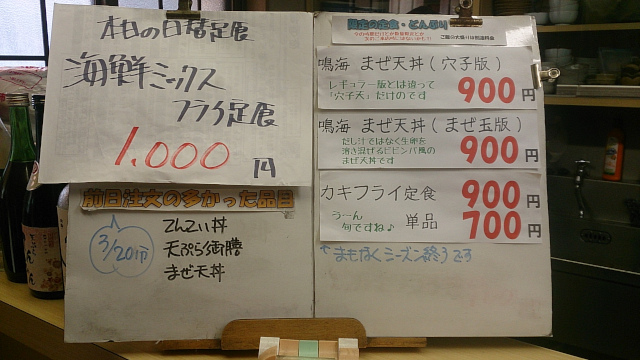 本日の日替定食
海鮮ミックス
フライ定食
1,000円
前日注文の多かった品目
3/20分
てんこい丼
天ぷら御膳
まぜ天丼
限定の定食・どんぶり
鳴海 まぜ天丼(穴子版)
レギュラー版とは違って
「穴子天」だけのです
900円
鳴海 まぜ天丼(まぜ玉版)
だし汁ではなく生卵を
溶き混ぜるビビンバ風の
まぜ天丼です
900円
カキフライ定食 900円
うーん
旬ですね♪
単品 700円
↑まもなくシーズン終了です